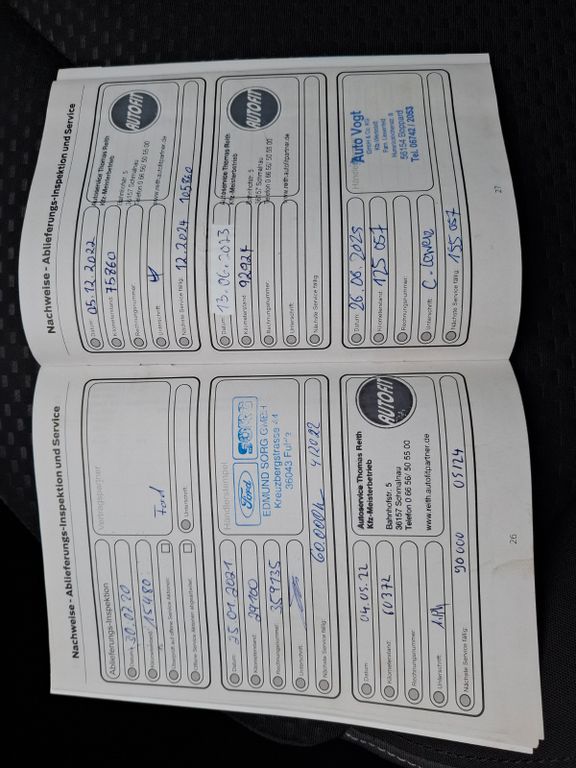 Nachweise - Ablieferungs-Inspektion und Service
Ablieferungs-Inspektion
Vertragspartner
Datum 30.07.20
Kilometerstand: 15480
Ford
Überprüft auf offene Service Aktionen:
Offene Service Aktionen abgearbeitet:
Unterschrift:
Datum 25.01.2021
Kilometerstand: 29100
Rechnungsnummer: 359135
Unterschrift:
Nächste Service fällig: 60.000km 4/2022
Händlerstempel
Ford SORG
EDMUND SORG GMBH
Kreuzbergstrasse 44
36043 Fulda
Datum 04.05.22
Kilometerstand: 60372
Rechnungsnummer:
Unterschrift:
Nächste Service fällig: 90 000 05/24
AUTOFIT
Autoservice Thomas Reith
Kfz-Meisterbetrieb
Bahnhofstr. 5
36157 Schmalnau
Telefon 0 66 56/ 50 55 00
www.reith.autofitpartner.de
26
Nachweise - Ablieferungs-Inspektion und Service
Datum 05.12.2022
Kilometerstand: 75860
Rechnungsnummer:
Unterschrift:
Nächste Service fällig: 12.2024 105860
AUTOFIT
Autoservice Thomas Reith
Kfz-Meisterbetrieb
Bahnhofstr. 5
36157 Schmalnau
Telefon 0 66 56/ 50 55 00
www.reith.autofitpartner.de
Datum 13.06.2023
Kilometerstand: 92924
Rechnungsnummer:
Unterschrift:
Nächste Service fällig:
AUTOFIT
Autoservice Thomas Reith
Kfz-Meisterbetrieb
Bahnhofstr. 5
36157 Schmalnau
Telefon 0 66 56/ 50 55 00
www.reith.autofitpartner.de
Datum 26.06.2025
Kilometerstand: 125 057
Rechnungsnummer:
Unterschrift:
Nächste Service fällig: 155 057
Auto Vogt
GmbH & Co. KG
Kfz-Meisterbetrieb
56154 Boppard
Tel. 06742 / 2053
27